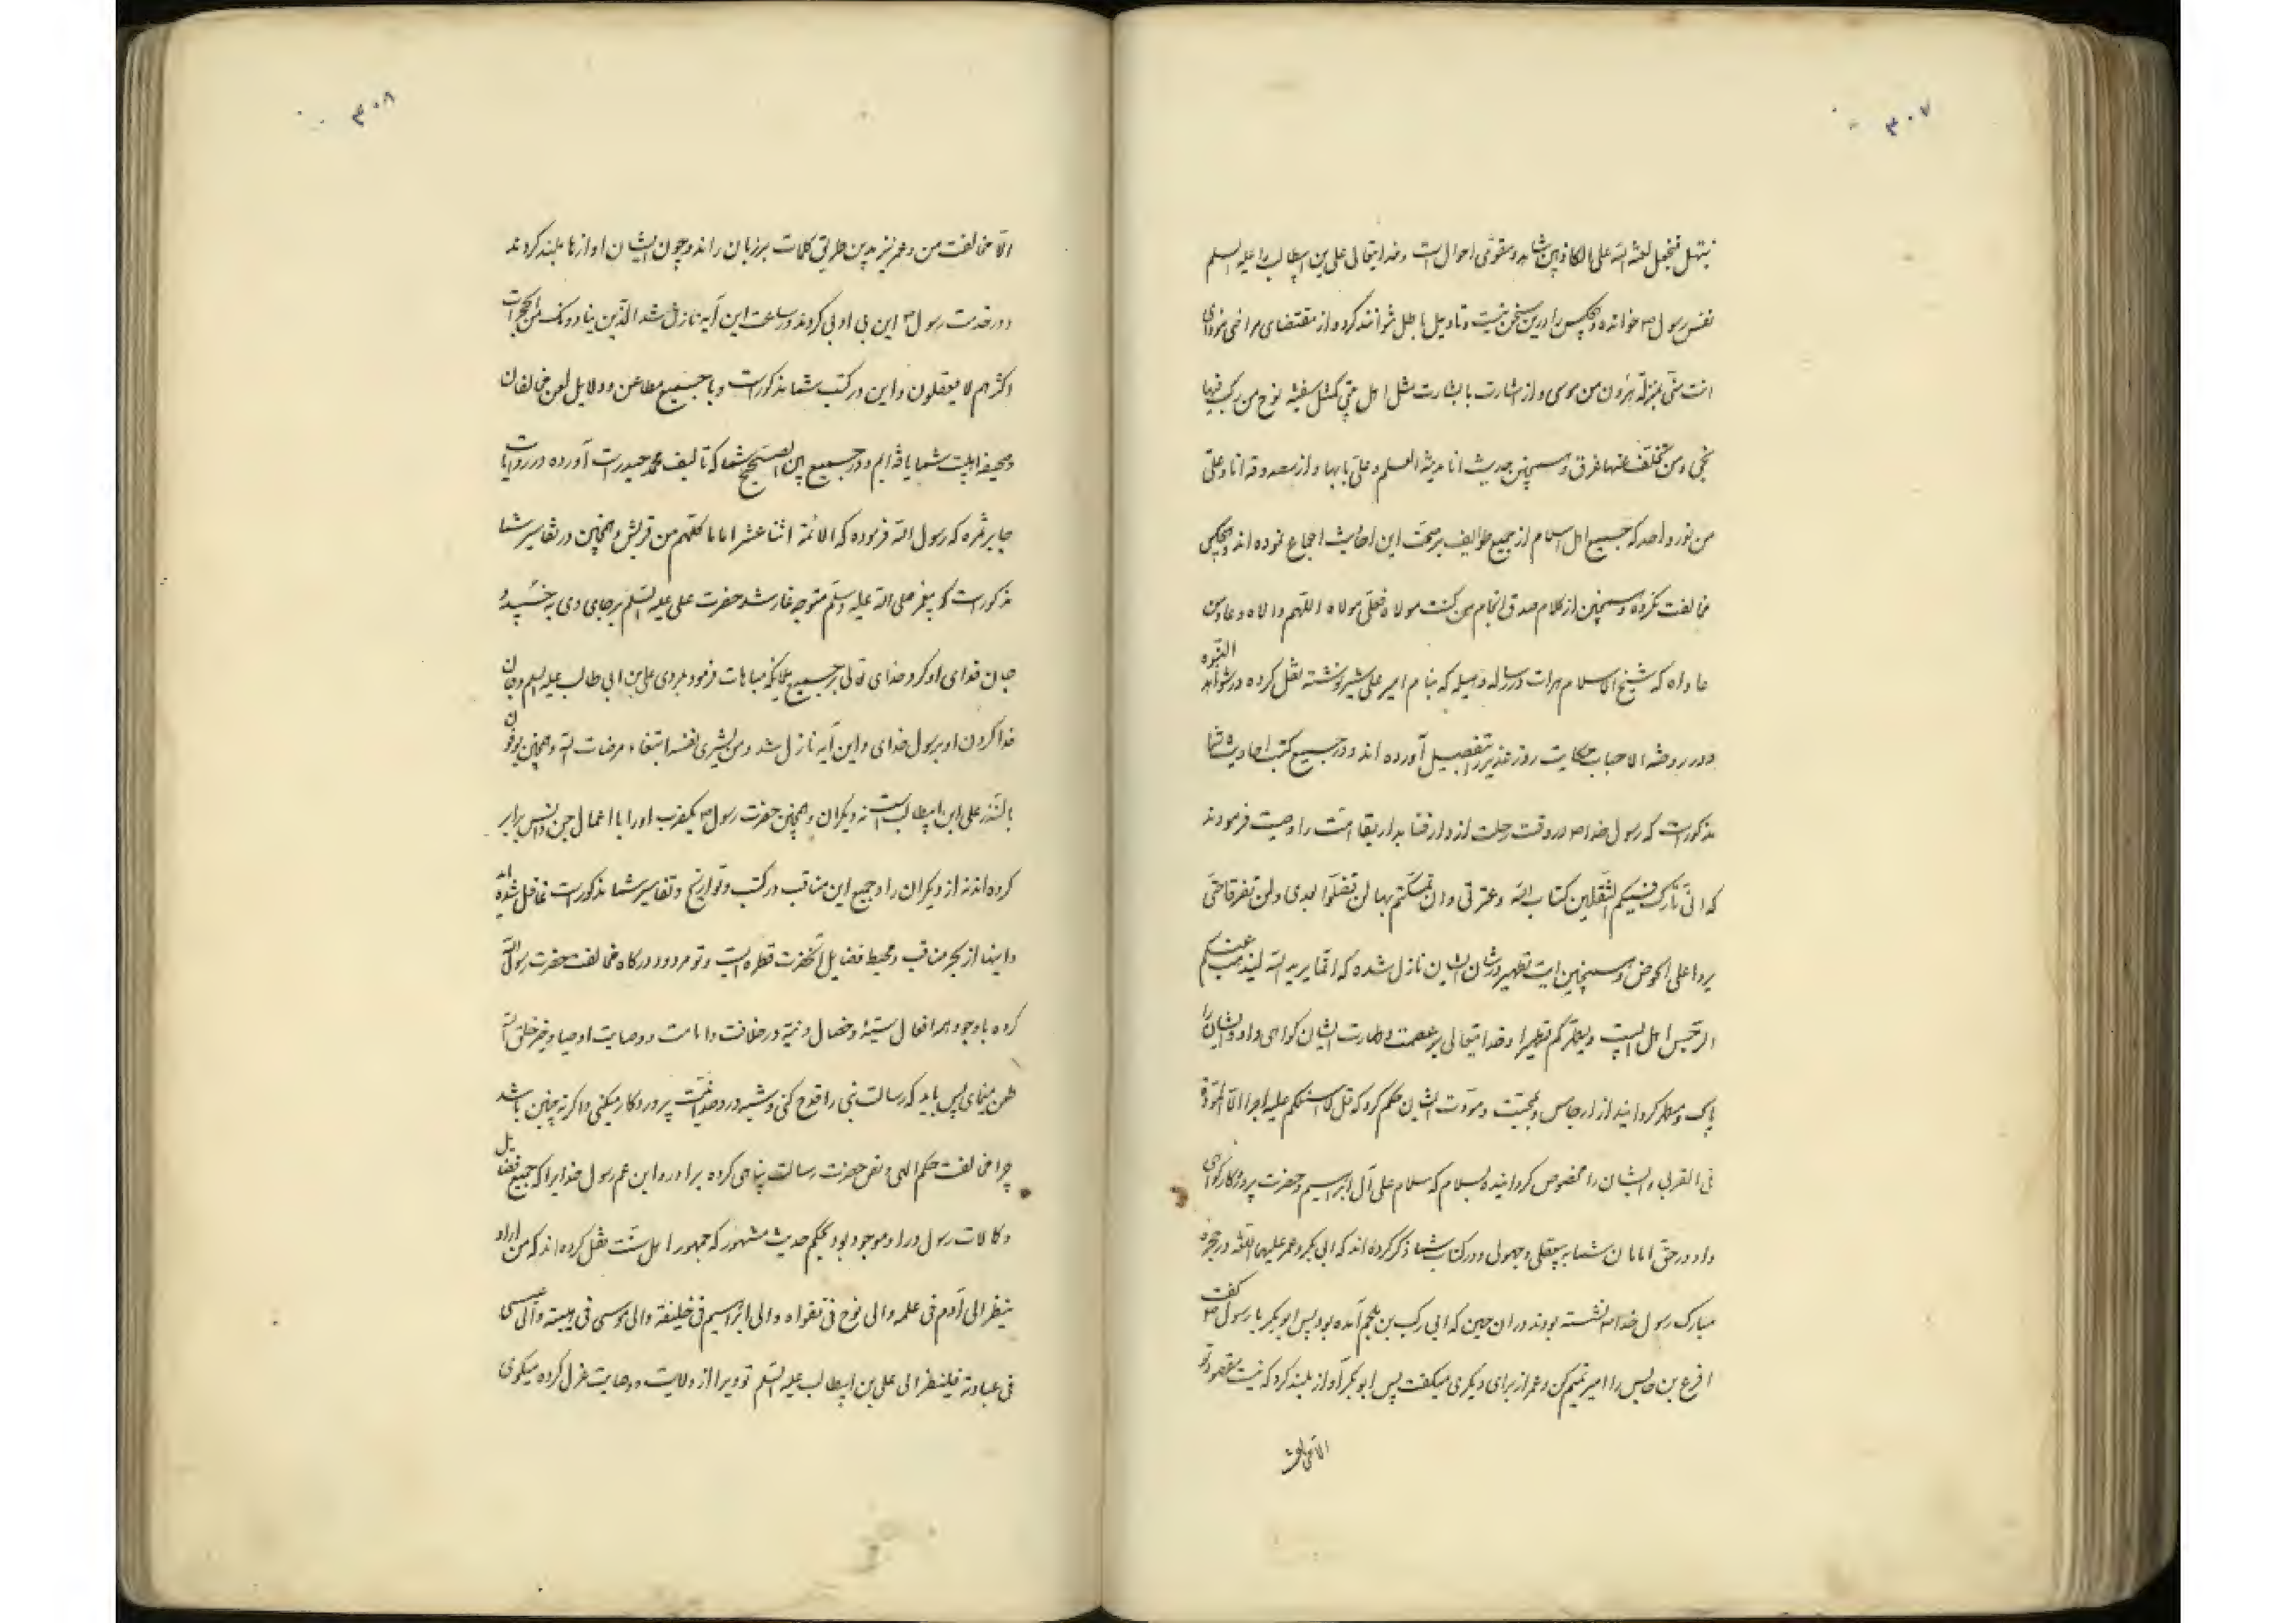 ۳۰۷
نبتهل فنجعل لعنة الله علی الکاذبین شاهد و مقوی احوال است و خدایتعالی علی بن ابیطالب را علیه السلم
نفس رسول ص خوانده و هیچکس را درین سخن نیست و تاویل باطل نتوانند کرد و از مقتضای
انت منی بمنزلة هرون من موسی و از اشارت با بشارت مثل اهل بیتی کمثل سفینة نوح من رکب فیها
نجی و من تخلف عنها غرق و همچنین حدیث انا مدینة العلم و علی بابها و از مصدوقه انا و علی
من نور واحد که جمیع اهل اسلام از جمیع طوایف بر صحت این احادیث اجماع نموده اند و هیچکس
مخالفت نکرده و همچنین از کلام صدق انجام من کنت مولاه فعلی مولاه اللهم وال من والاه و عاد من
عاداه که شیخ الاسلام هرات در رساله وسیله که بنام امیر علی شیر نوشته نقل کرده و در شواهد النبوه
و در روضة الاحباب حکایت روز غدیر را بتفصیل آورده اند و در جمیع کتب احادیث شما
مذکورست که رسول خدا ص در وقت رحلت از دار فنا بدار بقا امت را وصیت فرمودند
که انی تارک فیکم الثقلین کتاب الله و عترتی و ان تمسکتم بهما لن تضلوا بعدی و لن تفرقا حتی
یردا علی الحوض و همچنین ایت تطهیر در شان ایشان نازل شده که انما یرید الله لیذهب عنکم
الرجس اهل البیت و یطهرکم تطهیرا و خدایتعالی بر عصمت و طهارت ایشان کواهی داد و ایشان را
پاک و مطهر کردانید از ارجاس و بمحبت و مودت ایشان حکم کرد که قل لا اسئلکم علیه اجرا الا المودة
فی القربی و ایشان را مخصوص کردانیده بسلام که سلام علی آل ابراهیم و حضرت پروردکار کواهی
داد در حق امامان شما به بیعقلی و جهولی و در کتاب شما ذکر کرده اند که ابی بکر و عمر علیهما اللعنه در حجره
مبارک رسول خدا ص نشسته بودند در ان حین که ابی رکب بن ملجم آمده بود پس ابو بکر با رسول ص کفت
اقرع بن حابس را امیر تمیم کن و عمر از برای دیکری میکفت پس ابو بکر آواز بلند کرد که نیست مقصود تو
الا مخالفت
۳۰۸
الا مخالفت من و عمر نیز بدین طریق کلمات بر زبان راند و چون ایشان اوازها بلند کردند
و در خدمت رسول ص این بی ادبی کردند در ساعت این آیه نازل شد الذین ینادونک من الحجرات
اکثرهم لا یعقلون و این در کتب شما مذکورست و با جمیع مطاعن و دلایل لعن مخالفان
و محبط اهلبیت شما یافته ایم و در جمیع بین الصحیح شما که تالیف محمد حمیدیست آورده در روایات
جابر ثمره که رسول الله فرموده که الائمة اثنا عشر اماما کلهم من قریش و همچنین در تفاسیر شما
مذکورست که پیغمبر صلی الله علیه و سلم متوجه غار شد حضرت علی علیه السلم بر جای وی بخسپید و
جان فدای او کرد خدای تعالی بر جمیع ملائکه مباهات فرمود بمردی علی بن ابی طالب علیه السلم و جان
فدا کردن او برسول خدای و این آیه نازل شد و من یشری نفسه ابتغاء مرضات الله و همچنین یوفون
بالنذر علی ابن ابیطالب است نه دیکران و همچنین حضرت رسول ص یکضرب اورا با اعمال جن و انس برابر
کرده اند نه از دیکران را و جمیع این مناقب در کتب و تواریخ و تفاسیر شما مذکورست غافل شده اند
و اینها از بحر مناقب و محیط فضایل آنحضرت قطره ایست و تو مردود درکاه مخالفت حضرت رسول الله
کرده با وجود همه افعال سیئه و خصال دنیه در خلافت و امامت و وصایت اوصیا و خیر خلق الله
طعن مینمای پس باید که رسالت نبی را قدح کنی و شبه در وحدانیت پروردکار میکنی و اکر نه چنین باشد
چرا مخالفت حکم الهی و نص حضرت رسالت پناهی کرده برادر و ابن عم رسول خدایرا که جمیع فضایل
و کمالات رسول در او موجود بود بحکم حدیث مشهور که جمهور اهل سنت نقل کرده اند که من اراد
ینظر الی آدم فی علمه و الی نوح فی تقواه و الی ابراهیم فی خلیفته و الی موسی فی هیبته و الی عیسی
فی عبادته فلینظر الی علی بن ابیطالب علیه السلم تو ویرا از ولایت و وصایت عزل کرده میکوی